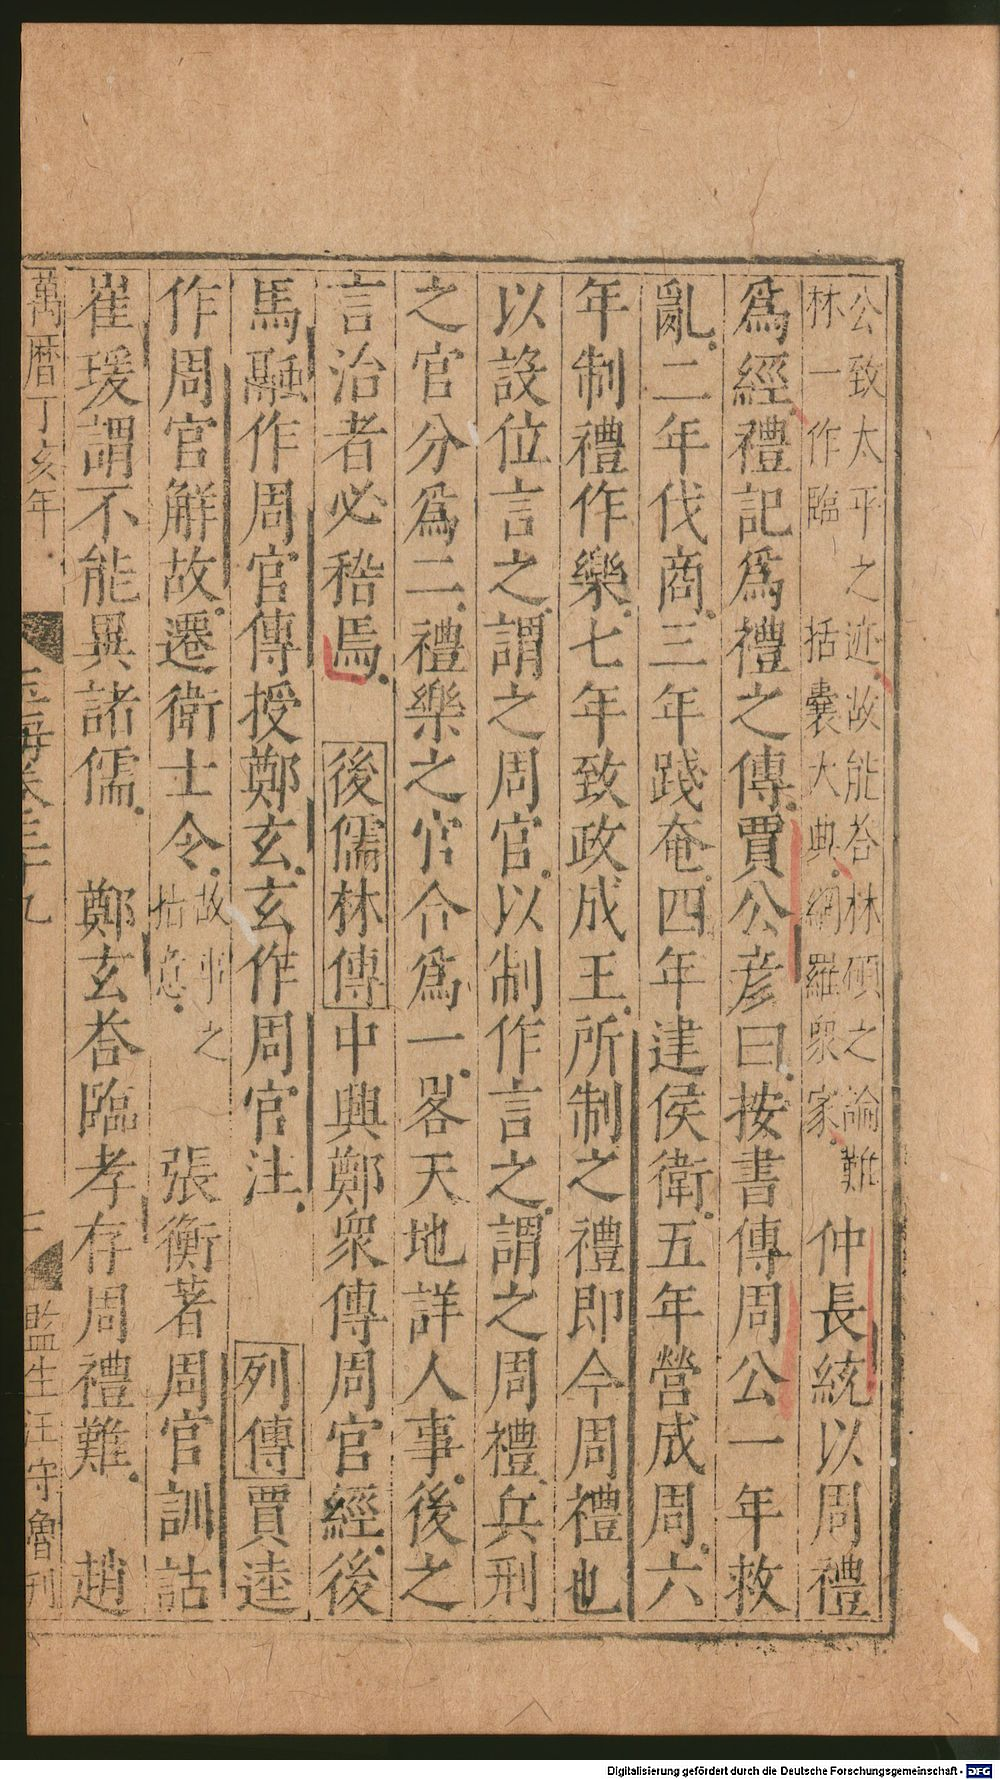 公致太平之迹故能荅林碩之論難
林一作臨 括囊大典網羅衆家 仲長統以周禮
爲經禮記爲禮之傳賈公彦曰按書傳周公一年救
亂二年伐商三年踐奄四年建侯衛五年營成周六
年制禮作樂七年致政成王所制之禮即今周禮也
以設位言之謂之周官以制作言之謂之周禮兵刑
之官分爲二禮樂之官合爲一畧天地詳人事後之
言治者必稽焉 後儒林傳中興鄭衆傳周官經後
馬融作周官傳授鄭玄玄作周官注 列傳賈逵
作周官解故遷衛士令故事之
指意 張衡著周官訓詁
崔瑗謂不能異諸儒 鄭玄荅臨孝存周禮難 趙
萬曆丁亥年 玉海卷三十九 監生汪守魯刊
Digitalisierung gefördert durch die Deutsche Forschungsgemeinschaft - DFG